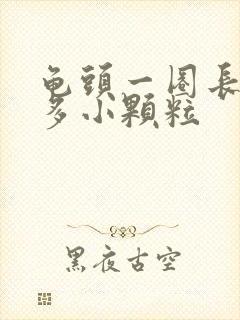 龟頭一圈長
多小顆粒
黑夜古空